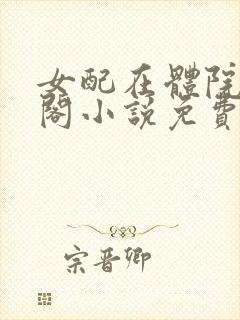 女配在體院
閣小說免費
宗晋卿